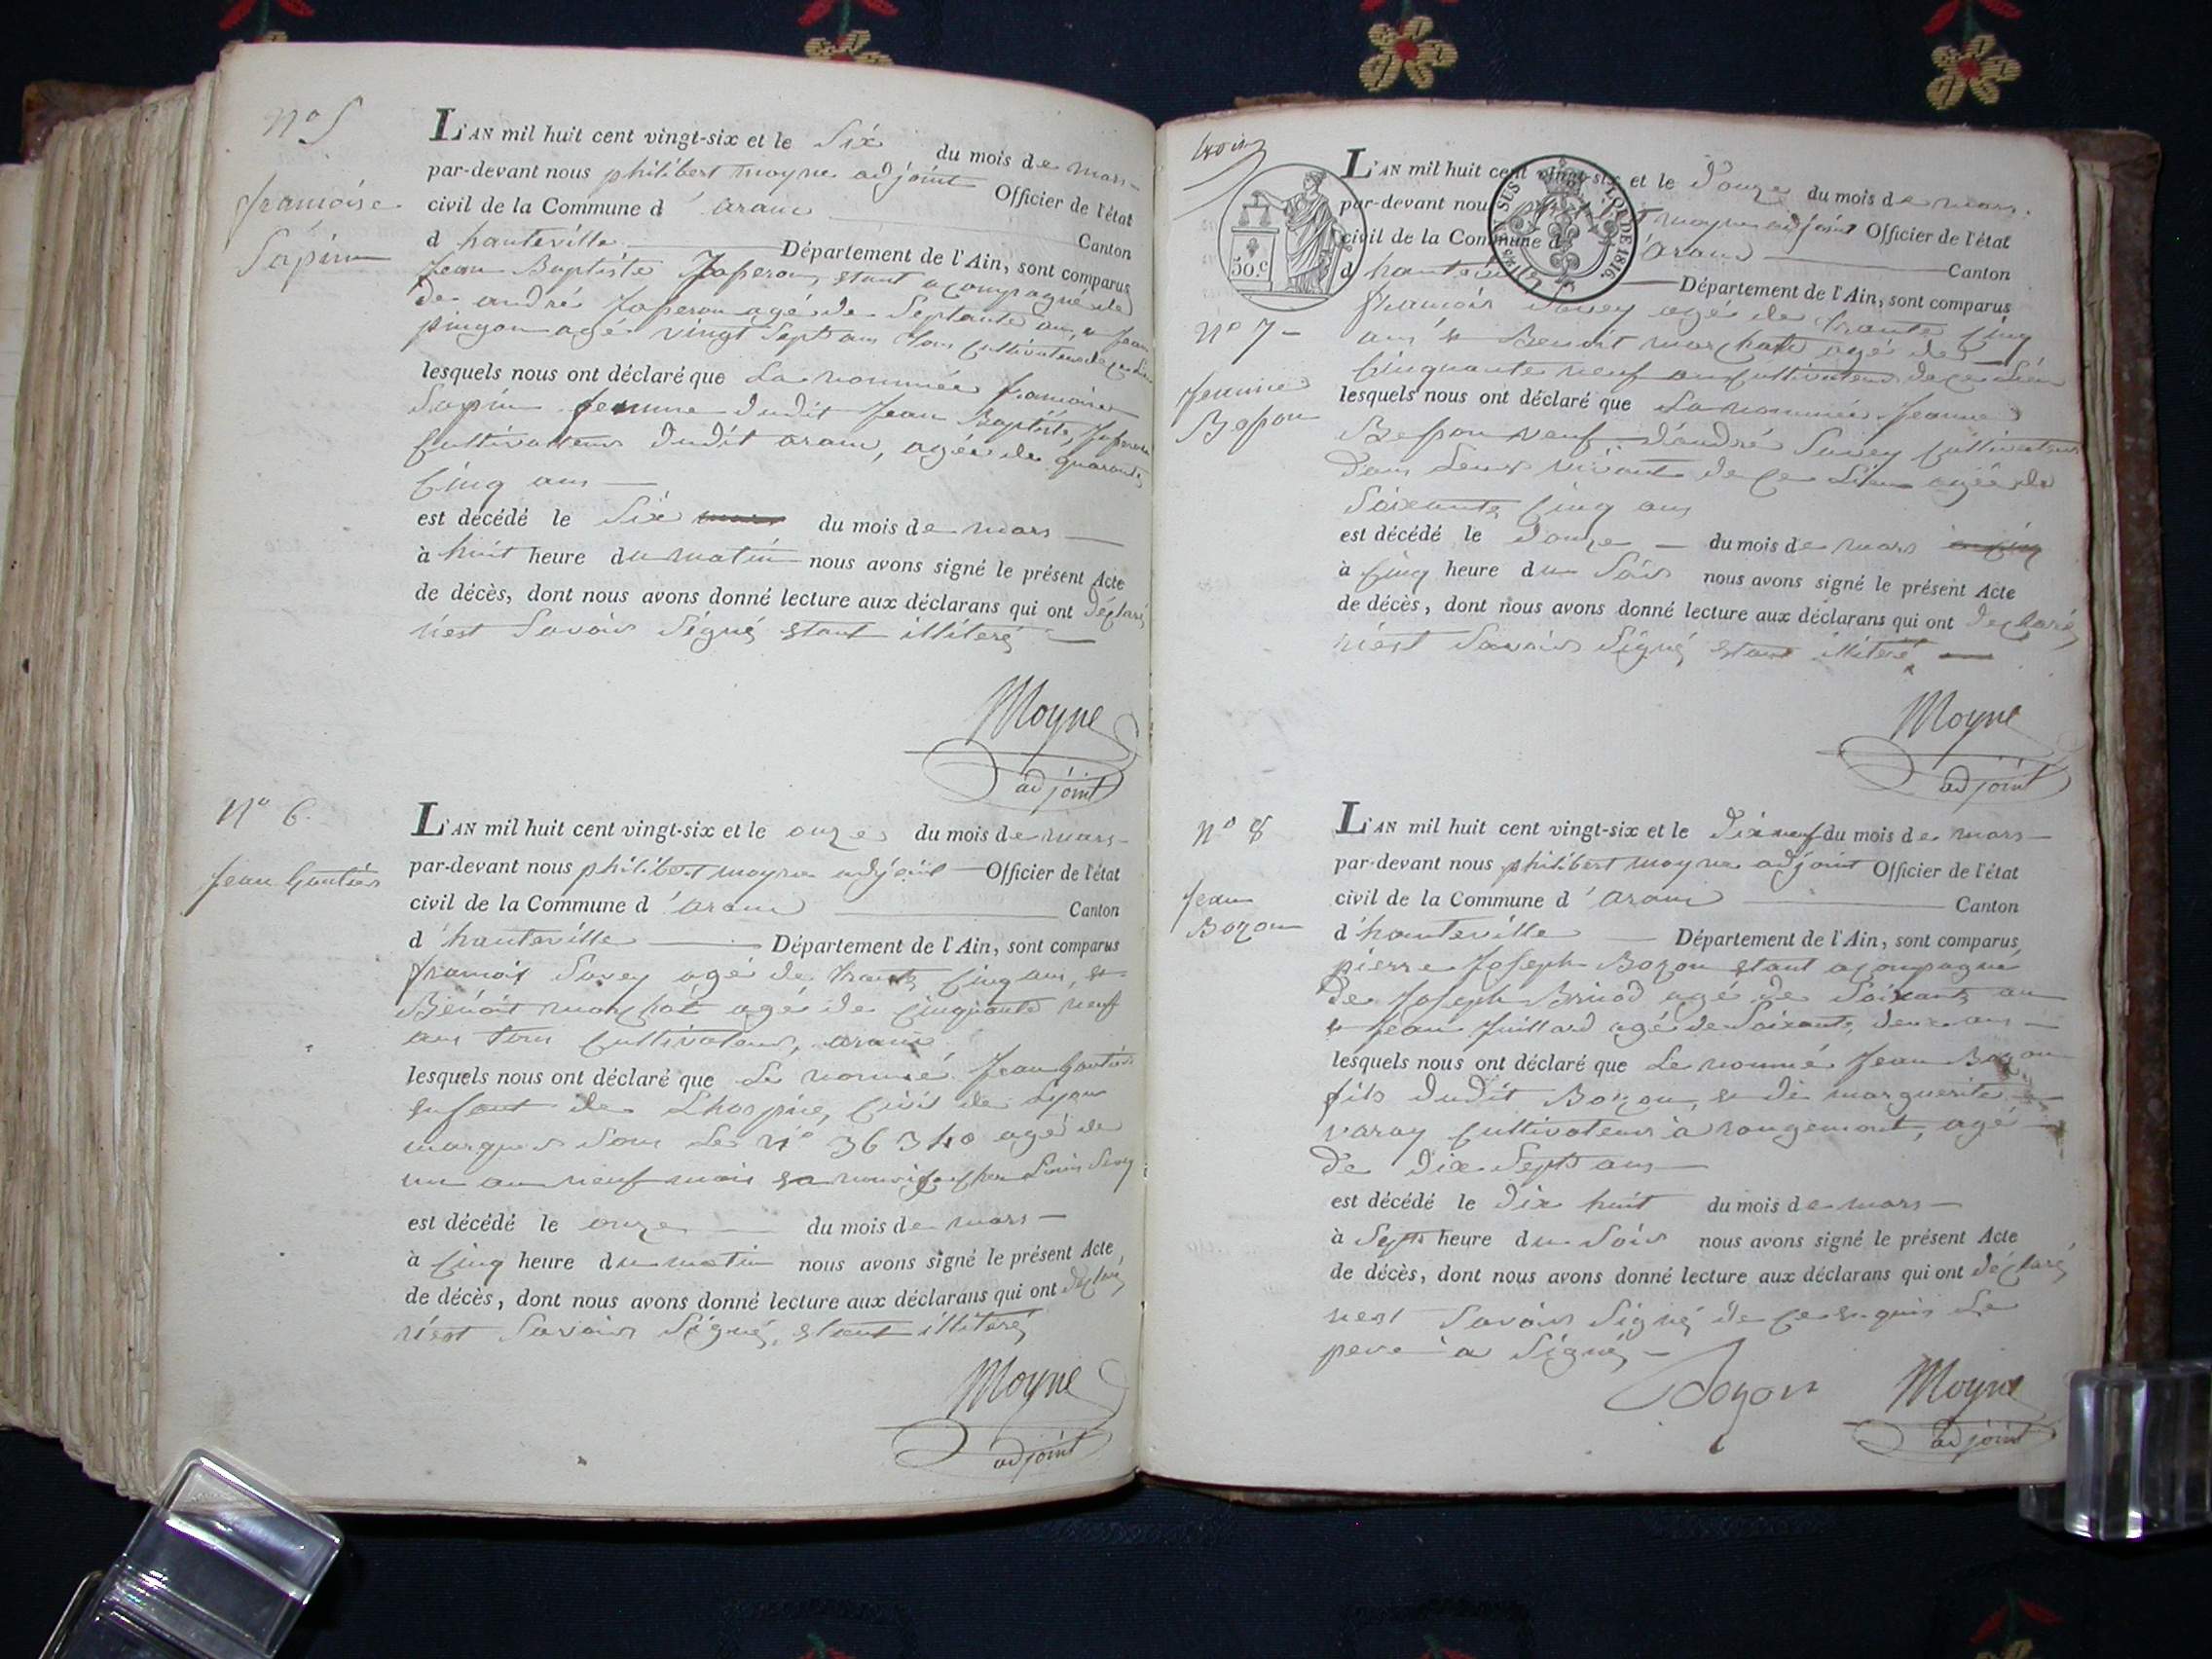 n° 5
françoise
Sapin
L'AN mil huit cent vingt-six et le Six du mois de mars
par-devant nous philibert moyne adjoint Officier de l'état
civil de la Commune d'aranc Canton
d hauteville Département de l'Ain, sont comparus
Jean Baptiste Japeron, etant acompagné de
de andré Japeron agé de Septante ans, & Jean
pingon agé vingt Sept ans tous cultivateurs de ce Lieu
lesquels nous ont déclaré que La nommée françoise
Sapin femme dudit Jean Baptiste Japeron
Cultivateur dudit aranc, agée de quarante
Cinq ans
est décédé le Six du mois de mars
à huit heure du matin nous avons signé le présent Acte
de décès, dont nous avons donné lecture aux déclarans qui ont déclaré
n'est Savoir Signé etant illiteré
Moyne
adjoint
N° 6.
Jean Gautier
L'AN mil huit cent vingt-six et le onze du mois de mars
par-devant nous philibert moyne adjoint Officier de l'état
civil de la Commune d'aranc Canton
d'hauteville Département de l'Ain, sont comparus
françois Savey agé de trante Cinq ans, &
Benoit marchat agé de Cinquante neuf
ans tous Cultivateurs, aranc
lesquels nous ont déclaré que Le nommé Jean Gautier
enfant de Lhospice, Civil de Lyon
marque Sous Le N° 36340 agé de
un an neuf mois en chez Louis Savey
est décédé le onze du mois de mars
à Cinq heure du matin nous avons signé le présent Acte
de décès, dont nous avons donné lecture aux déclarans qui ont déclaré
n'est Savoir Signé, etant illiteré
Moyne
adjoint
trois
50.C
TIMB SUS LOI DE 1816.
N° 7
Jeanne
Besson
L'AN mil huit cent vingt-six et le Douze du mois de mars.
par-devant nous philibert moyne adjoint Officier de l'état
civil de la Commune d'aranc Canton
d hauteville Département de l'Ain, sont comparus
francois Savey agé de trante Cinq
ans & Benoit marchatt agé de
Cinquante neuf ans Cultivateurs de ce Lieu
lesquels nous ont déclaré que La nommée Jeanne
Besson veuf d'andré Savey Cultivateur
dans Leurs vivant de ce Lieu agée de
Soixante Cinq ans
est décédé le Douze du mois de mars
à Cinq heure du Soir nous avons signé le présent Acte
de décès, dont nous avons donné lecture aux déclarans qui ont declaré
n'est Savoir Signé etant illiteré
Moyne
adjoint
N° 8
Jean
Bozon
L'AN mil huit cent vingt-six et le Dix neuf du mois de mars
par-devant nous philibert moyne adjoint Officier de l'état
civil de la Commune d'aranc Canton
d'hauteville Département de l'Ain, sont comparus
pierre Joseph Bozon etant acompagné
de Joseph Briod agé de Soixante an
& Jean Juillard agé de Soixante, deux ans
lesquels nous ont déclaré que Le nommé Jean Bozon
fils dudit Bozon, & de marguerite
varay Cultivateur à rougemont, agé
de Dix Sept ans
est décédé le Dix huit du mois de mars
à Sept heure du Soir nous avons signé le présent Acte
de décès, dont nous avons donné lecture aux déclarans qui ont déclaré
nest Savoir Signé de ce enquis Le
pere a Signé
Bozon
Moyne
adjoint